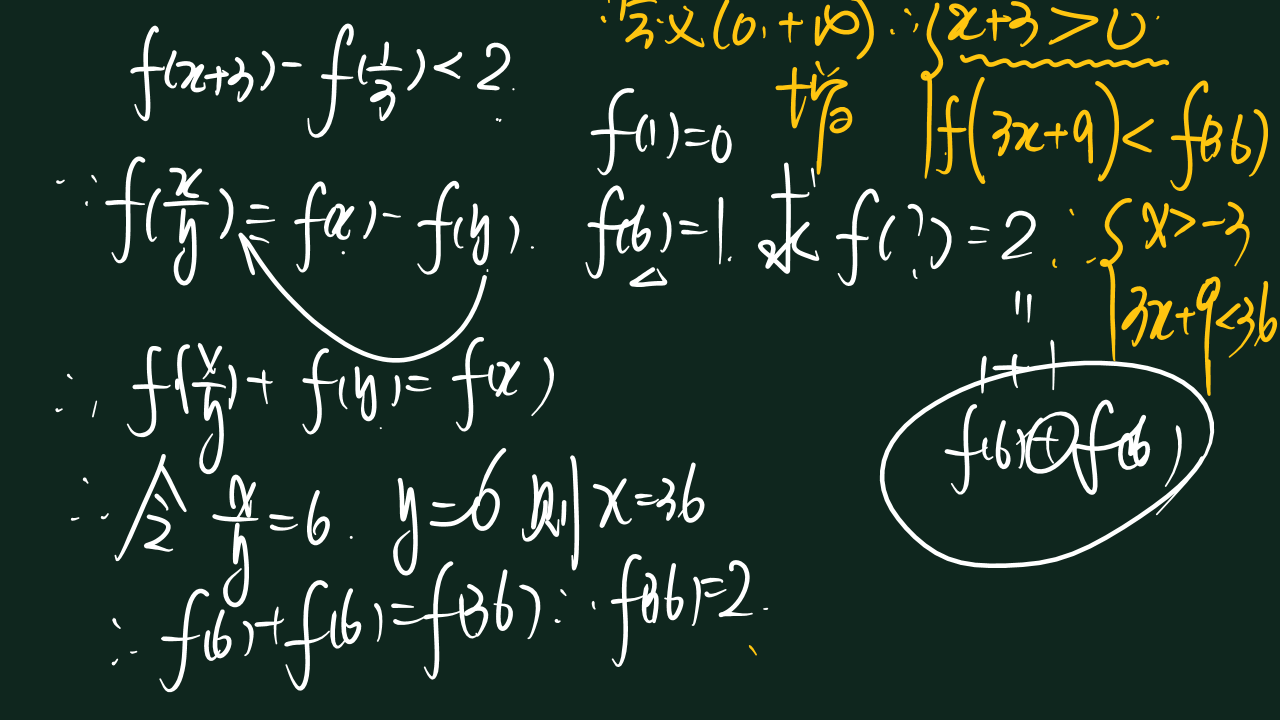 f(x+3)-f(1/3)<2.
∵f(x/y)=f(x)-f(y).
∴f(x/y)+f(y)=f(x)
∴令 x/y=6. y=6 则 x=36
∴f(6)+f(6)=f(36) ∴f(36)=2.
f(1)=0
f(6)=1. 求 f(?)=2
=
1+1
f(6)+f(6)
∵定义(0,+∞)
增
∴{x+3>0
f(3x+9)<f(36)
∴{x>-3
3x+9<36